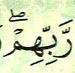 رَّبِّهِمْ ۖ